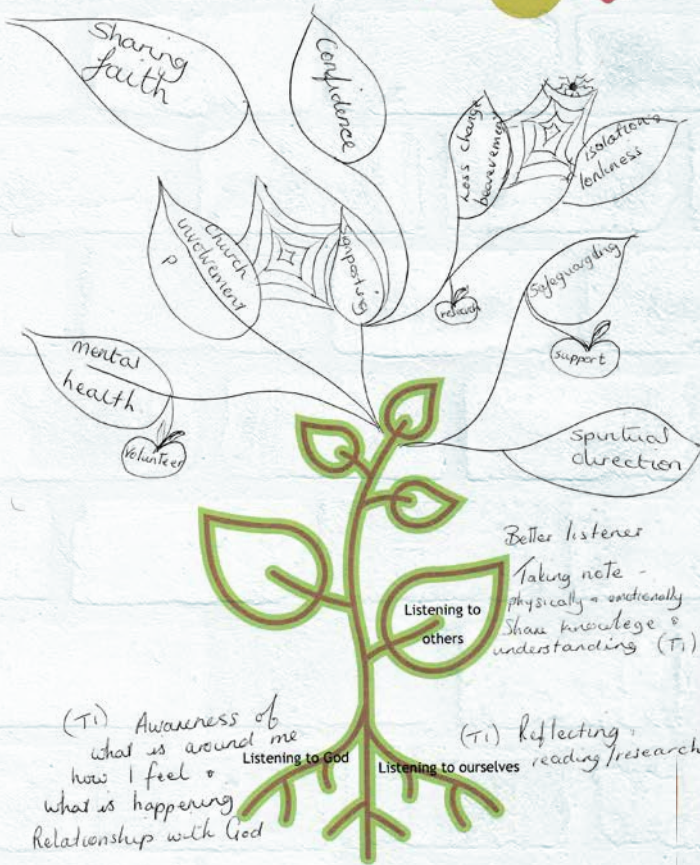 Sharing
faith
Confidence
Loss change
beaverement
isolation &
lonliness
church
involvement
p
signposting
research
Safeguarding
support
mental
health
volunteer
Spiritual
direction
Better listener
Taking note -
physically & emotionally
Share knowlege &
understanding (T1)
Listening to
others
(T1) Awareness of
what is around me
how I feel &
what is happening
Relationship with God
Listening to God
(T1) Reflecting,
reading/research
Listening to ourselves